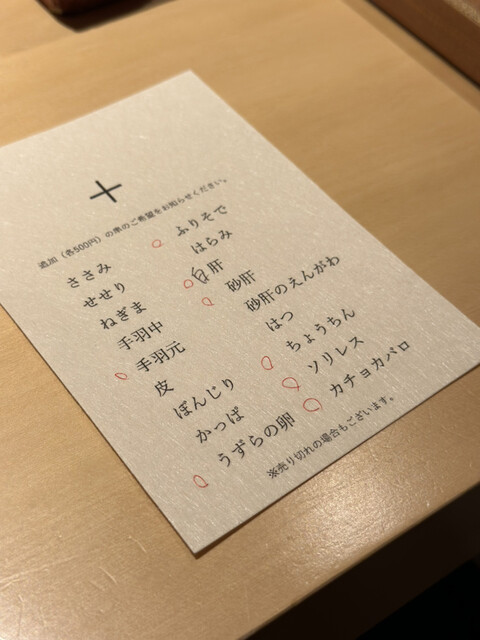 ＋
追加（各500円）の串のご希望をお知らせください。
ささみ
せせり
ねぎま
手羽中
手羽元
皮
ぼんじり
かっぱ
うずらの卵
ふりそで
はらみ
白肝
砂肝
砂肝のえんがわ
はつ
ちょうちん
ソリレス
カチョカバロ
※売り切れの場合もございます。